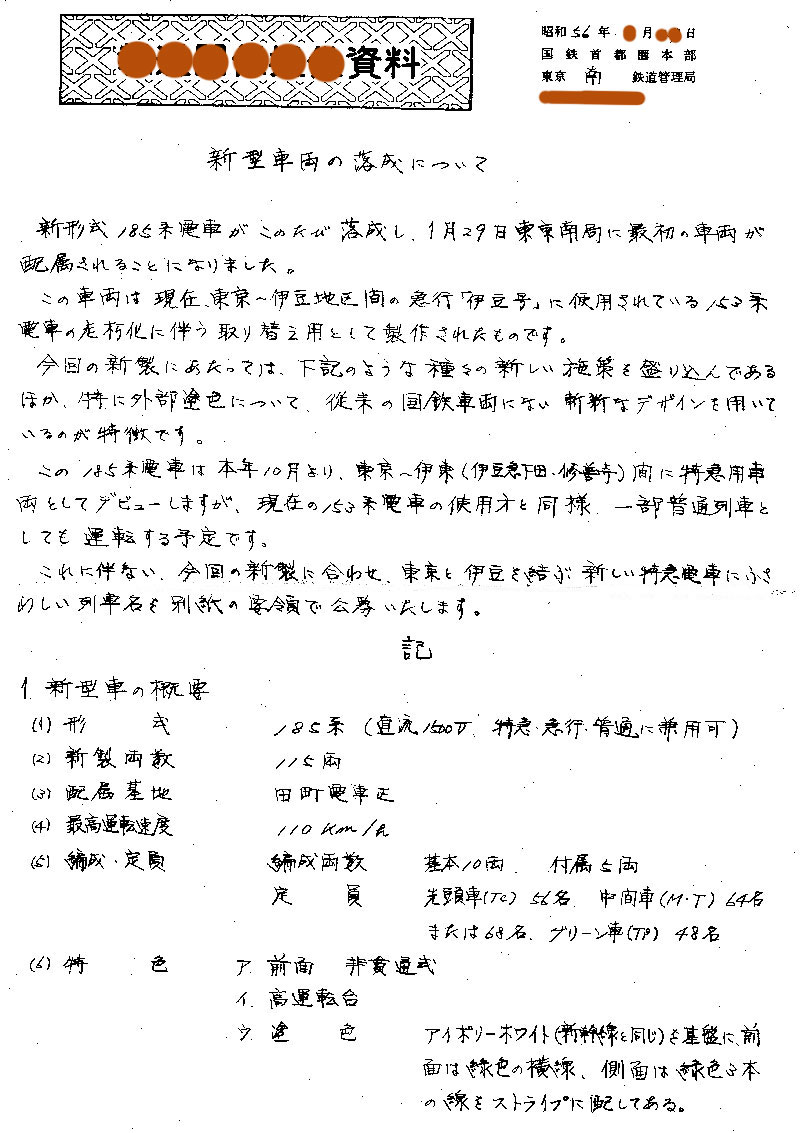 資料
昭和56年 月 日
国鉄首都圏本部
東京 南 鉄道管理局
新型車両の落成について
新形式185系電車がこのたび落成し、1月29日東京南局に最初の車両が
配属されることになりました。
この車両は現在、東京～伊豆地区間の急行「伊豆号」に使用されている153系
電車の老朽化に伴う取り替え用として製作されたものです。
今回の新製にあたっては、下記のような種々の新しい施策を盛り込んである
ほか、特に外部塗色について、従来の国鉄車両にない斬新なデザインを用いて
いるのが特徴です。
この185系電車は本年10月より、東京～伊東(伊豆急下田・修善寺)間に特急用車
両としてデビューしますが、現在の153系電車の使用方と同様、一部普通列車と
しても運転する予定です。
これに伴ない、今回の新製に合わせ、東京と伊豆を結ぶ新しい特急電車にふさ
わしい列車名を別紙の要領で公募いたします。
記
1. 新型車の概要
(1) 形 式 185系 (直流1500V、特急・急行・普通に兼用可)
(2) 新製両数 115両
(3) 配属基地 田町電車区
(4) 最高運転速度 110km/h
(5) 編成・定員 編成両数 基本10両 付属5両
定 員 先頭車(Tc) 56名、中間車(M・T) 64名
または68名、グリーン車(Ts) 48名
(6) 特 色 ア. 前面 非貫通式
イ. 高運転台
ウ. 塗 色 アイボリーホワイト(新幹線と同じ)を基盤に、前
面は緑色の横線、側面は緑色3本
の線をストライプに配してある。